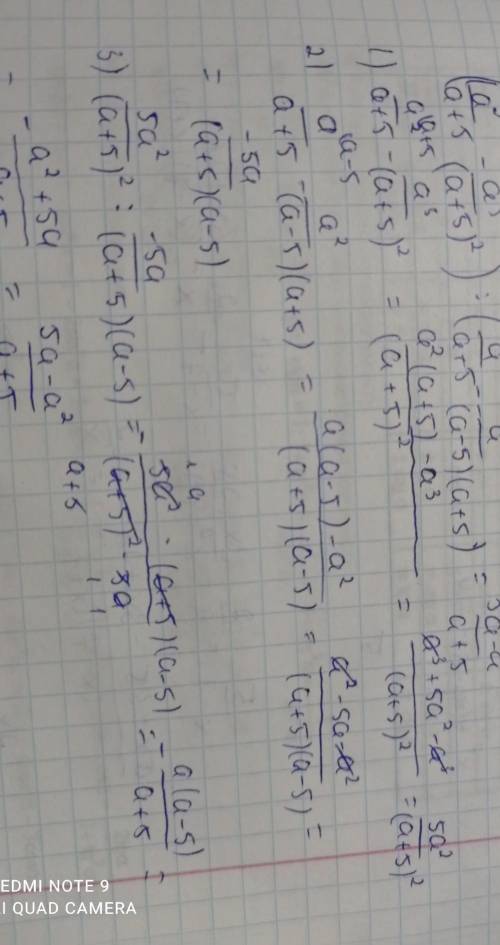 (a²/(a+5) - a³/(a+5)²) : (a/(a+5) - a²/((a-5)(a+5))) = (5a-a²)/(a+5)
1) a²\a+5/(a+5) - a³/(a+5)² = (a²(a+5)-a³)/(a+5)² = (a³+5a²-a³)/(a+5)² = 5a²/(a+5)²
2) a\a-5/(a+5) - a²/((a-5)(a+5)) = (a(a-5)-a²)/((a+5)(a-5)) = (a²-5a-a²)/((a+5)(a-5)) =
= -5a/((a+5)(a-5))
3) 5a²/(a+5)² : -5a/((a+5)(a-5)) = - (5a² · (a+5)(a-5))/((a+5)² · 5a) = - a(a-5)/(a+5) =
= (-a²+5a)/(a+5) = (5a-a²)/(a+5)
REDMI NOTE 9
AI QUAD CAMERA